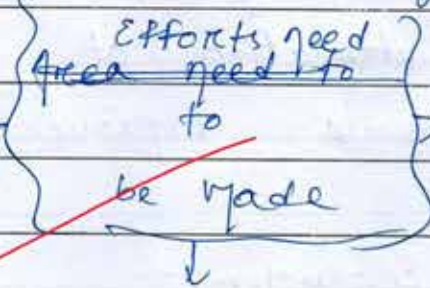 Efforts need
Area need to
to
be made